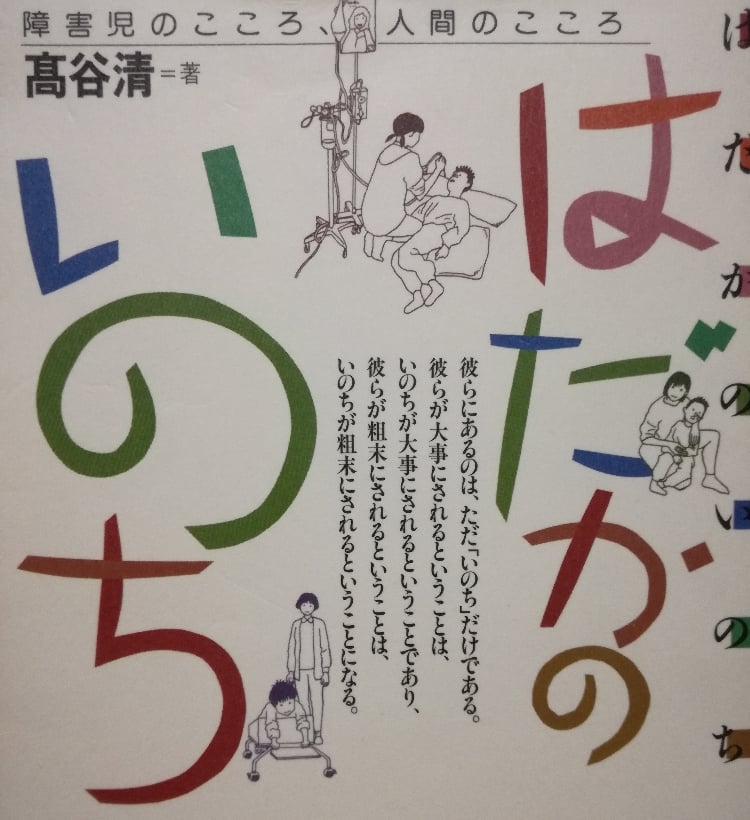 障害児のこころ、人間のこころ
髙谷清＝著
はだかの
いのち
彼らにあるのは、ただ「いのち」だけである。
彼らが大事にされるということは、
いのちが大事にされるということであり、
彼らが粗末にされるということは、
いのちが粗末にされるということになる。
はだかのいのち